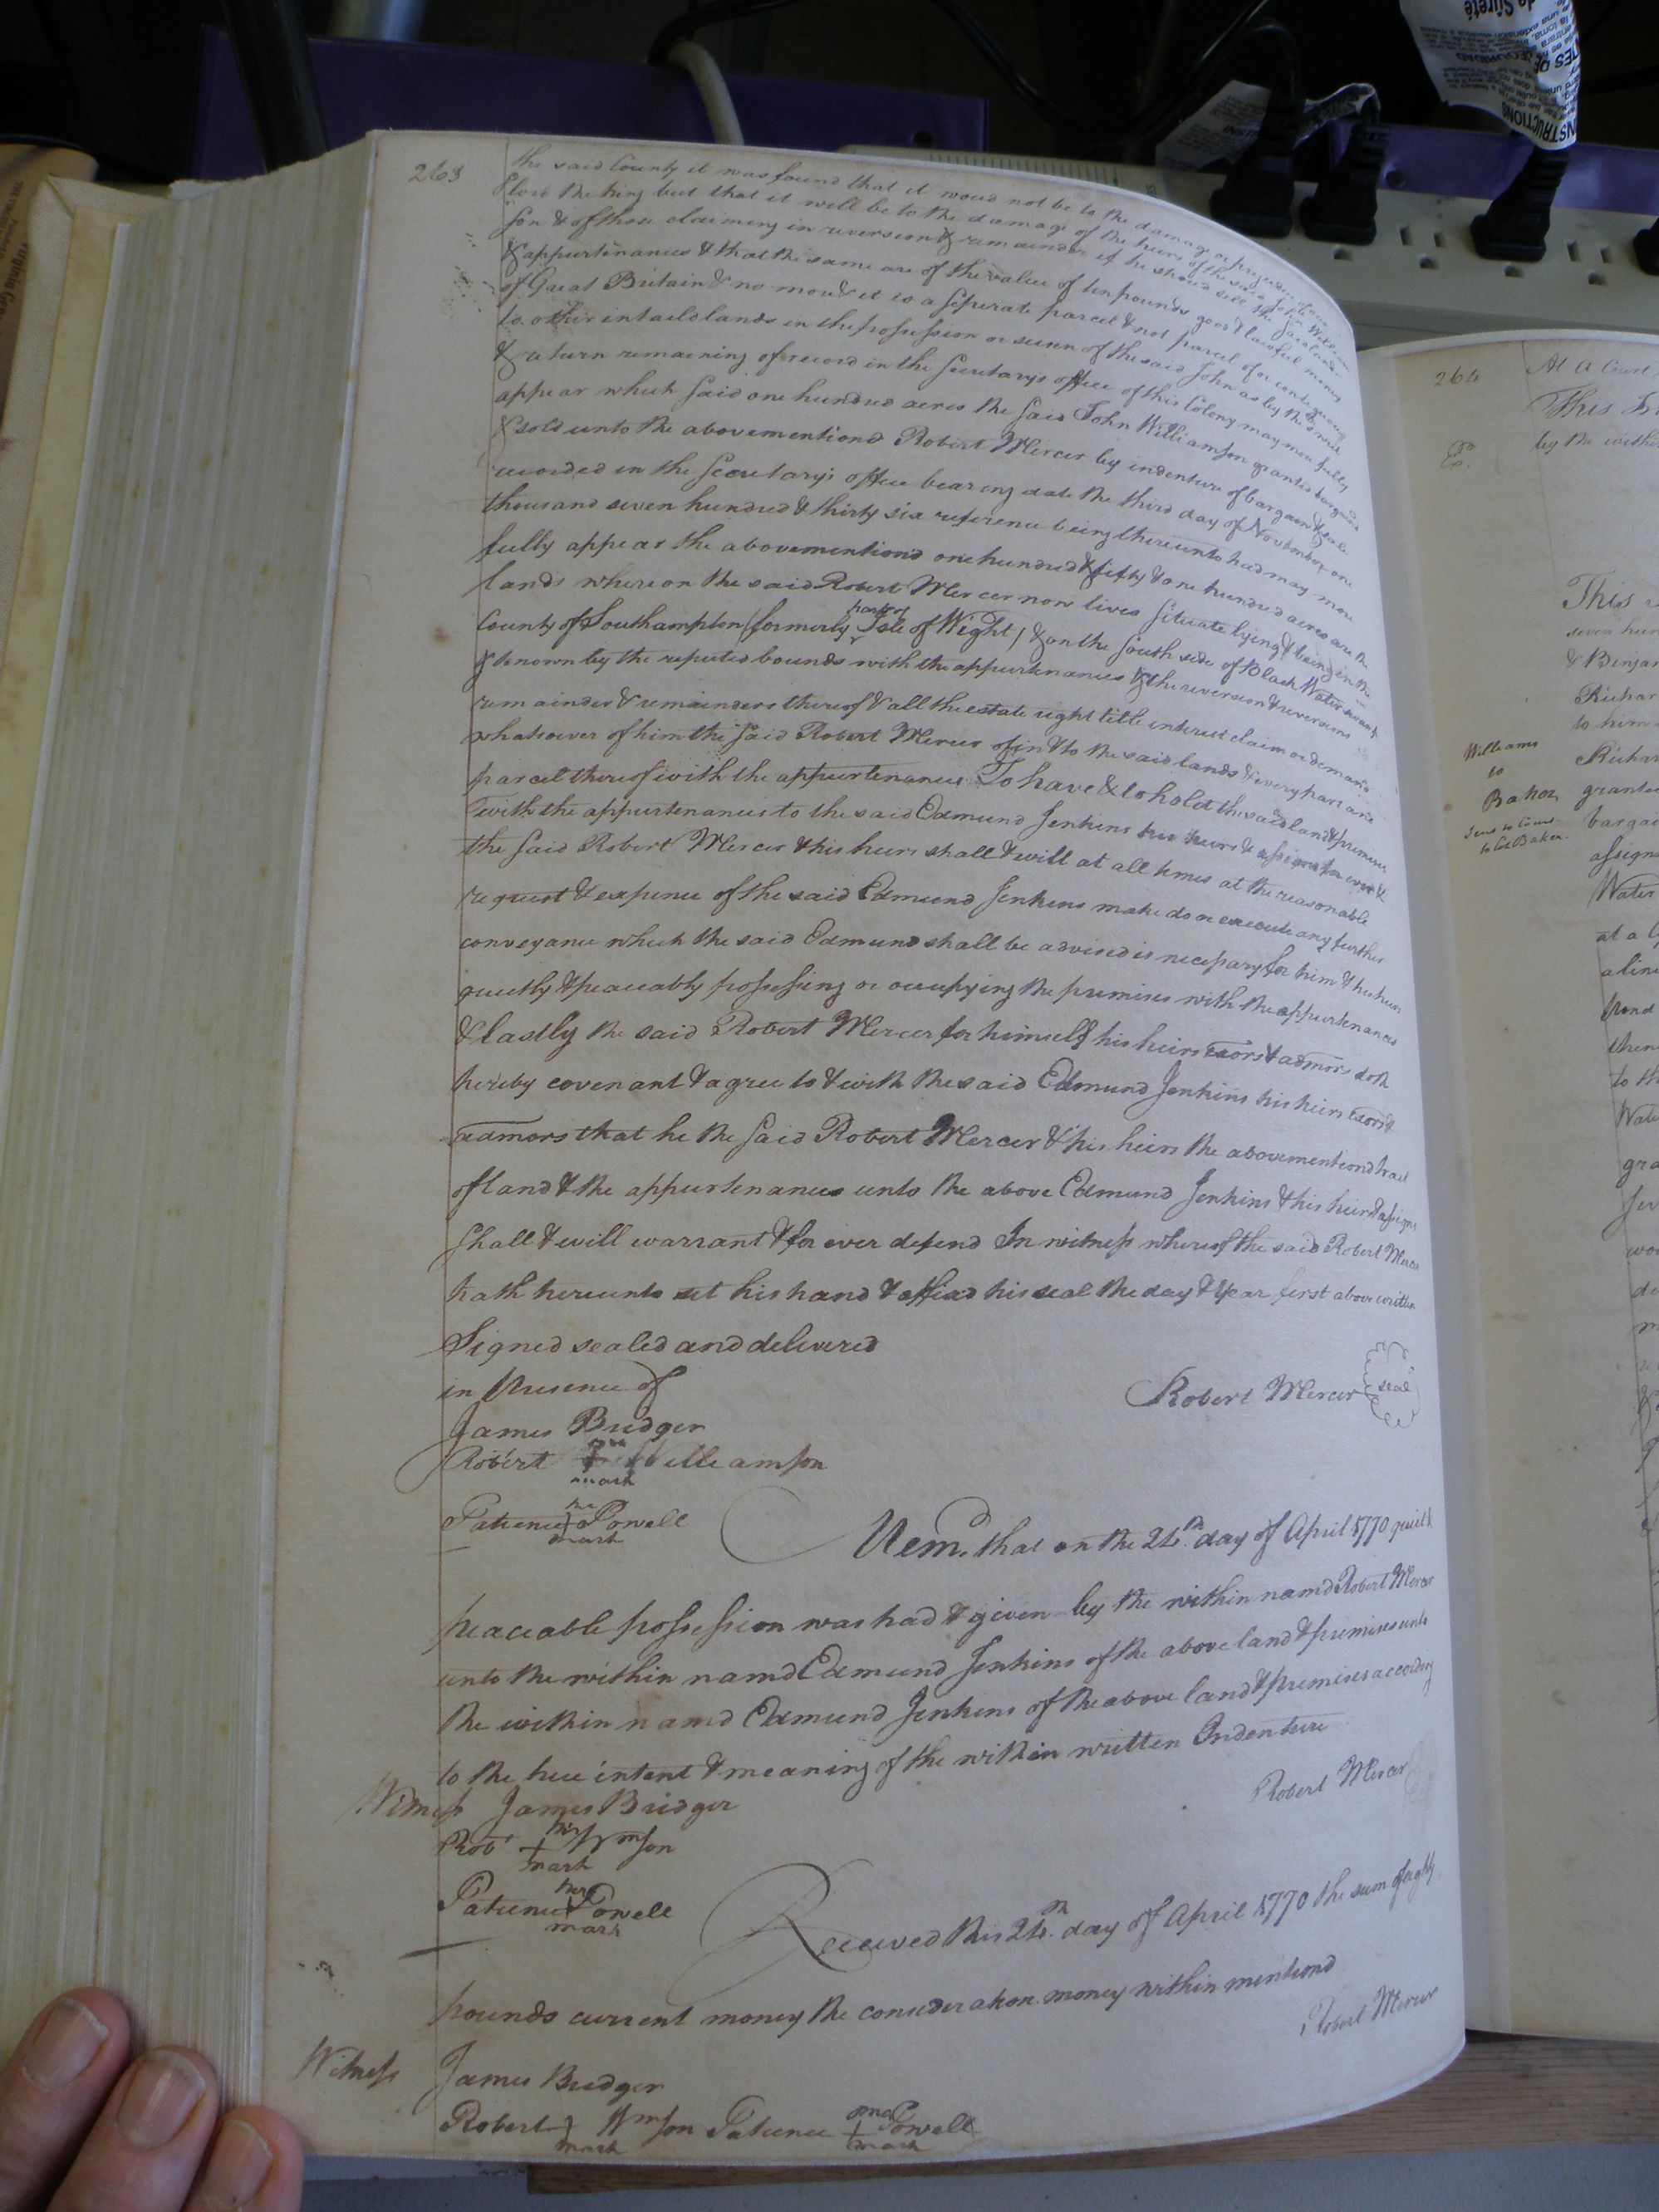 263
the said County it was found that it woud not be to the damage or prejudice of our
Lord the King but that it will be to the damage of the heirs of the said John William
son & of those claiming in reversion & remainder if he should sell the said land
& appurtenances & that the same are of the value of ten pounds good & lawful money
of Great Britain & no more & it is a seperate parcel & not parcel of or contiguous
to other intaild lands in the possession or seisin of the said John as by the s writ
& return remaining of record in the Secretary's office of this Colony may more fully
appear which said one hundred acres the said John Williamson granted bargaind
& sold unto the abovementiond Robert Mercer by indenture of bargain & sale
recorded in the Secretary's office bearing date the third day of November one
thousand seven hundred & thirty six reference being thereunto had may more
fully appear the abovementiond one hundred & fifty & one hundred acres are the
lands whereon the said Robert Mercer now lives situate lying & being in the
County of Southampton (formerly part of Isle of Wight) & on the south side of Black Water swamp
& known by the reputed bounds with the appurtenances & the reversion & reversions
remainder & remainders thereof & all the estate right title interest claim or demand
whatsoever of him the said Robert Mercer of in & to the said lands & every part and
parcel thereof with the appurtenances To have & to hold the said land & premises
with the appurtenances to the said Edmund Jenkins his heirs & assigns for ever &
the said Robert Mercer & his heirs shall & will at all times at the reasonable
request & expence of the said Edmund Jenkins make do or execute any further
conveyance which the said Edmund shall be advised is necessary for him & his heirs
quietly & peaceably possessing or occupying the premises with the appurtenances
& lastly the said Robert Mercer for himself his heirs exors & admors doth
hereby covenant & agree to & with the said Edmund Jenkins his heirs exors &
admors that he the said Robert Mercer & his heirs the abovementiond tract
of land & the appurtenances unto the above Edmund Jenkins & his heirs & assigns
shall & will warrant & for ever defend In witness whereof the said Robert Mercer
hath hereunto set his hand & affixd his seal the day & year first above written
Signed sealed and delivered
in presence of
Robert Mercer seal
James Bridger
Robert Williamson
mark
her
Patience Powell
mark
Mem. that on the 24th day of April 1770 quiet &
peaceable possession was had & given by the within namd Robert Mercer
unto the within namd Edmund Jenkins of the above land & premises unto
the within namd Edmund Jenkins of the above land & premises according
to the true intent & meaning of the within written Indenture
Robert Mercer
Witness James Bridger
his
Rob + Wmson
mark
her
Patience + Powell
mark
Received this 24th day of April 1770 the sum of eighty
pounds current money the consideration money within mentiond
Robert Mercer
Witness James Bridger
Robert Wmson Patience + Powell
mark mark
264
At a Court
This
by the within
This
seven hun
& Benjam
Richar
to him
Williams
to
Baker
Richar
grante
barga
assigns
Water
at a
a line
pond
then
to th
Wate
gra